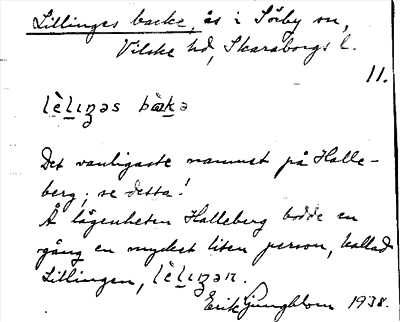 Lillinges backe, ås i Sörby sn,
Vilske hd, Skaraborgs l.
11.
lèlɩŋəs bàkə
Det vanligaste namnet på Halle-
berg; se detta!
Å lägenheten Halleberg bodde en
gång en mycket liten person, kallad
Lillingen, lèlɩŋən.
Erik Ljungblom 1938.